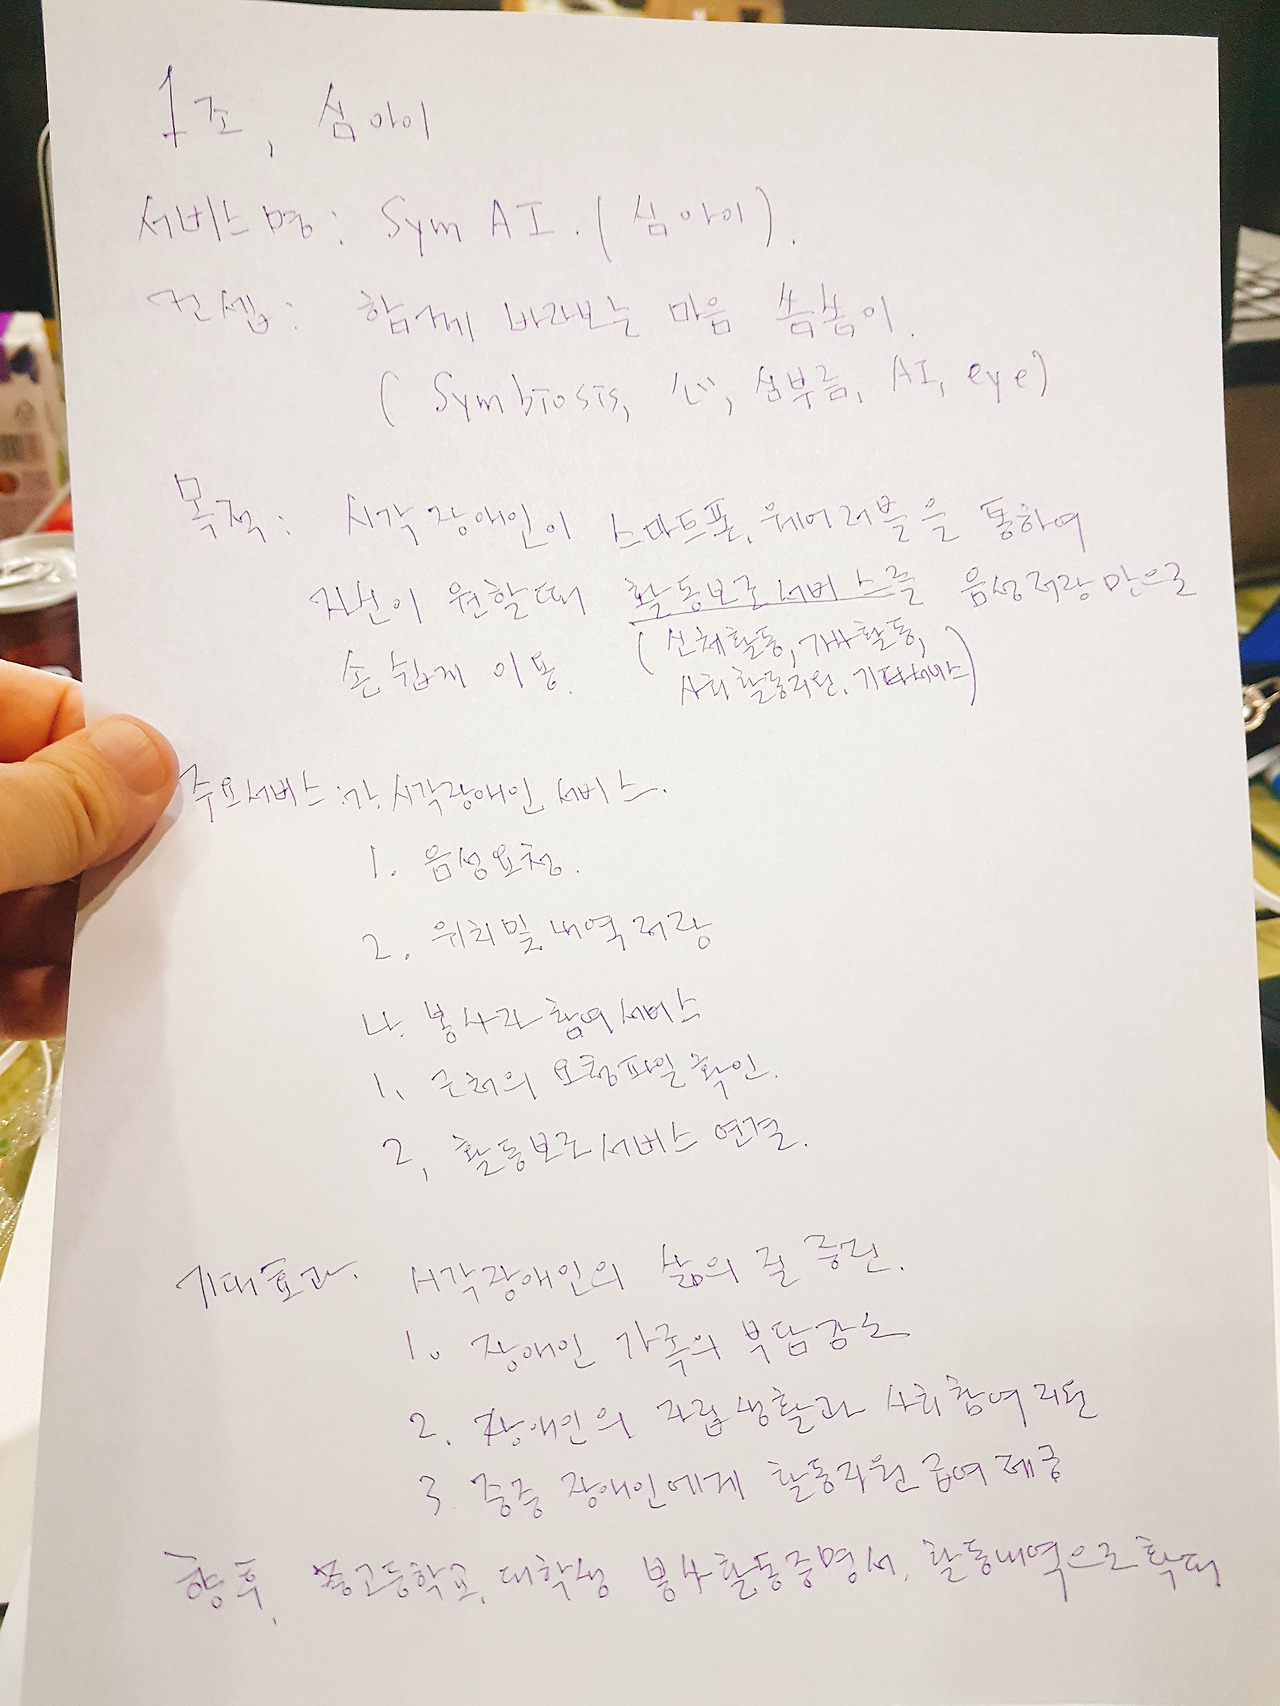 1조, 심아이
서비스명: Sym AI. (심아이).
컨셉: 함께 바라보는 마음 쏨쏨이.
(Symbiosis, 心, 심부름, AI, eye)
목적: 시각장애인이 스마트폰, 웨어러블을 통하여
자신이 원할때 활동보조서비스를 음성저장만으로
(신체활동, 가사활동,
손쉽게 이용.
사회활동지원, 기타서비스)
주요서비스: 가. 시각장애인 서비스.
1. 음성요청.
2. 위치및 내역저장
나. 봉사자 참여서비스
1. 근처의 요청파일확인.
2, 활동보조서비스 연결.
기대효과. 시각장애인의 삶의 질 증진.
1. 장애인 가족의 부담감소
2. 장애인의 자립생활과 사회참여 지원
3. 중증 장애인에게 활동지원급여 제공
향후, 중고등학교, 대학생 봉사활동증명서, 활동내역으로 확대